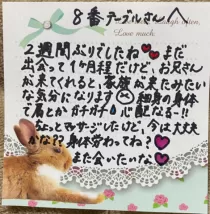 8番テーブルさんへ
Love much.
2週間ぶりでしたね まだ
出会って1ケ月程だけど、お兄さん
が来てくれると、家族が来たみたい
な気分になります 細身の身体
で肩とかガチガチ心配なる…!!
ちょっとマッサージしたけど、今は大丈夫
かな?? 身体労わってね?
また会いたいな